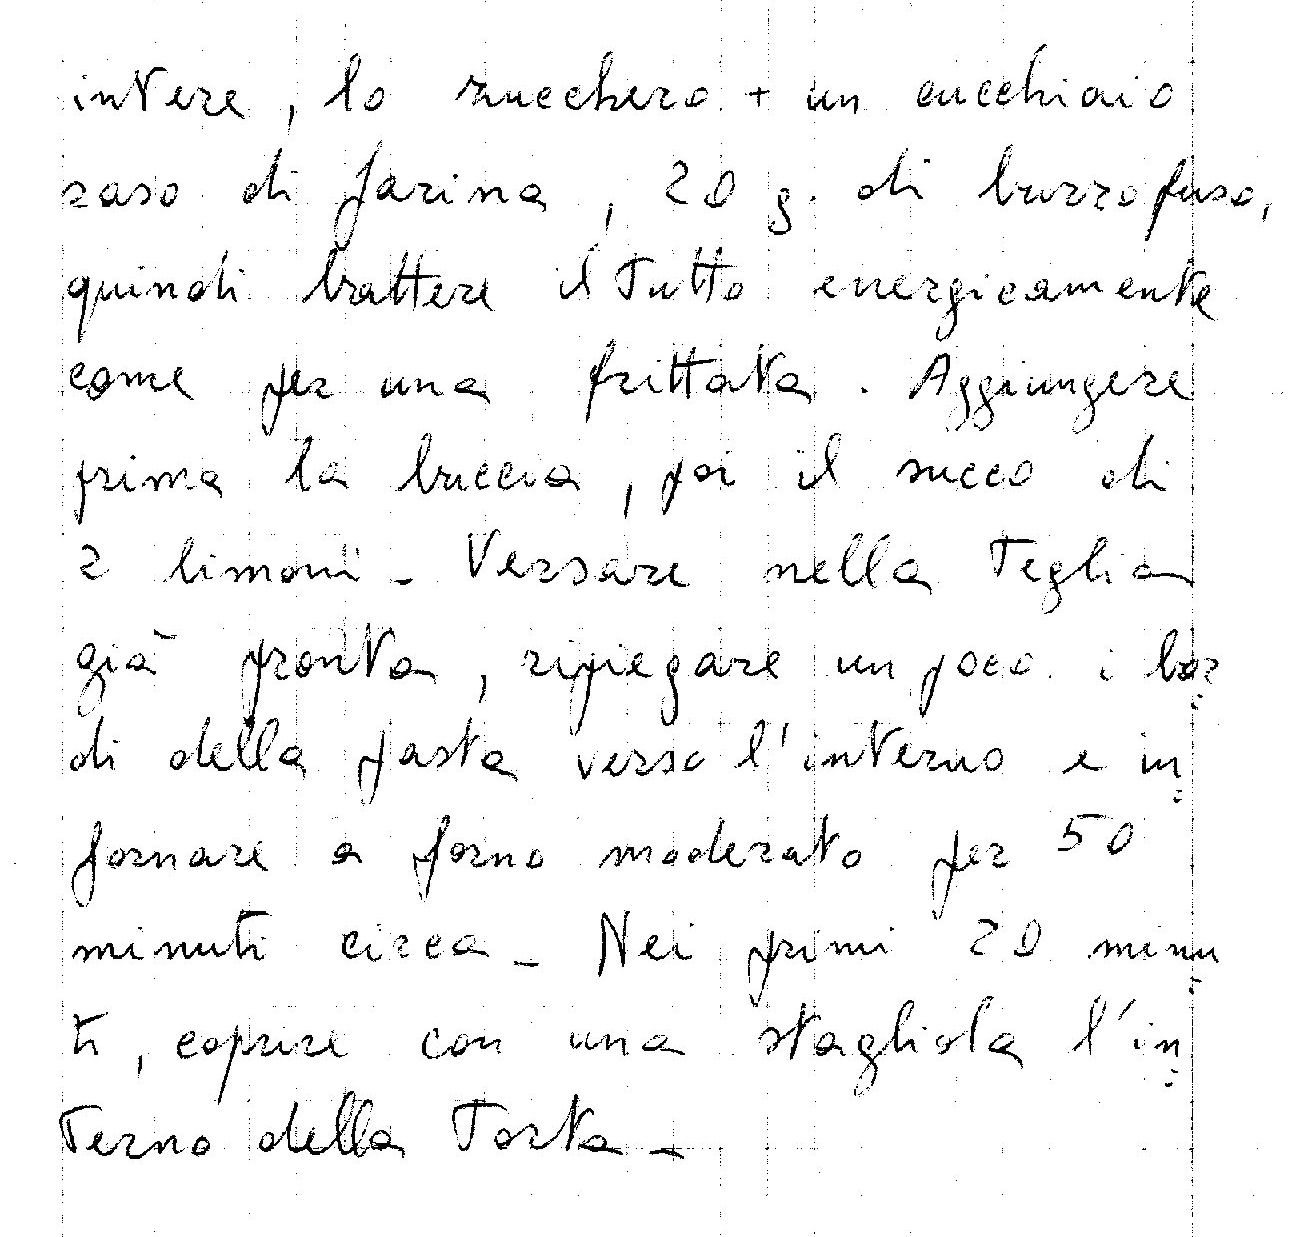 intere, lo zucchero + un cucchiaio
raso di farina, 20 g. di burro fuso,
quindi battere il tutto energicamente
come per una frittata. Aggiungere
prima la buccia, poi il succo di
2 limoni - Versare nella Teglia
già pronta, ripiegare un poco i bor=
di della pasta verso l'interno e in=
fornare a forno moderato per 50
minuti circa - Nei primi 20 minu=
ti, coprire con una stagliola l'in=
terno della Torta -